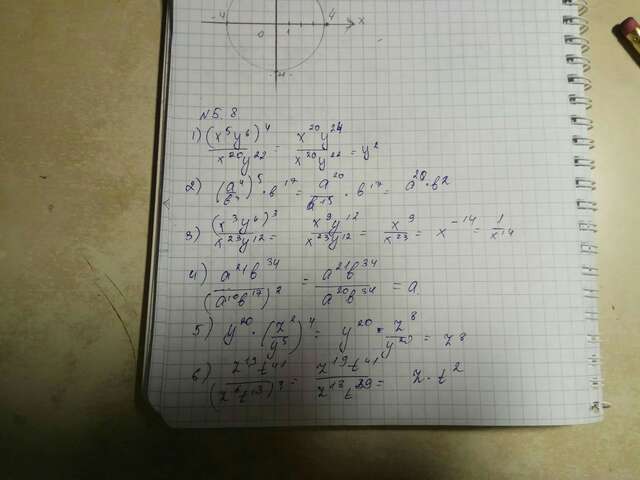 -4 0 1 4 x
-4
№5.8.
1) (x⁵y⁶)⁴/x²⁰y²² = x²⁰y²⁴/x²⁰y²² = y²
2) (a⁴/b³)⁵ · b¹⁷ = a²⁰/b¹⁵ · b¹⁷ = a²⁰ · b²
3) (x³y⁴)³/x²³y¹² = x⁹y¹²/x²³y¹² = x⁹/x²³ = x⁻¹⁴ = 1/x¹⁴
4) a²¹b³⁴/(a¹⁰b¹⁷)² = a²¹b³⁴/a²⁰b³⁴ = a
5) y²⁰ · (z²/y⁵)⁴ = y²⁰ · z⁸/y²⁰ = z⁸
6) z¹⁹t⁴¹/(z⁶t¹³)³ = z¹⁹t⁴¹/z¹⁸t³⁹ = z · t²